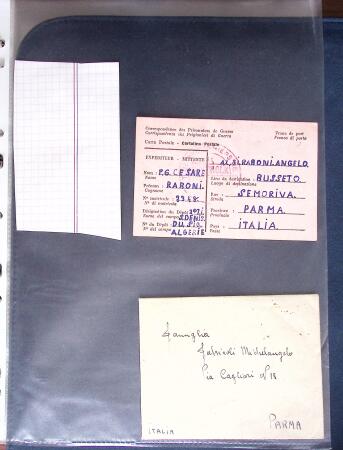 Correspondance des Prisonniers de Guerre
Corrispondenza dei Prigionieri di Guerra
Carte Postale - Cartolina Postale
Franco di porto
EXPÉDITEUR - MITTENTE
Nom : P.G. CESARE
Nome
Prénom : RABONI.
Cognome
N° matricule : 
N° di matricola
Désignation du Dépôt
S. DENIS.
N° du Dépôt DU SIG.
N° del campo ALGERIE
AL SI. RABONI ANGELO.
Lieu de destination BUSSETO.
Luogo di destinazione
Rue : SEMORIVA.
Strada
Province : PARMA.
Provincia
Pays : ITALIA.
Paese
Famiglia
Michelangelo
Via Cagliari n° 18
ITALIA
PARMA